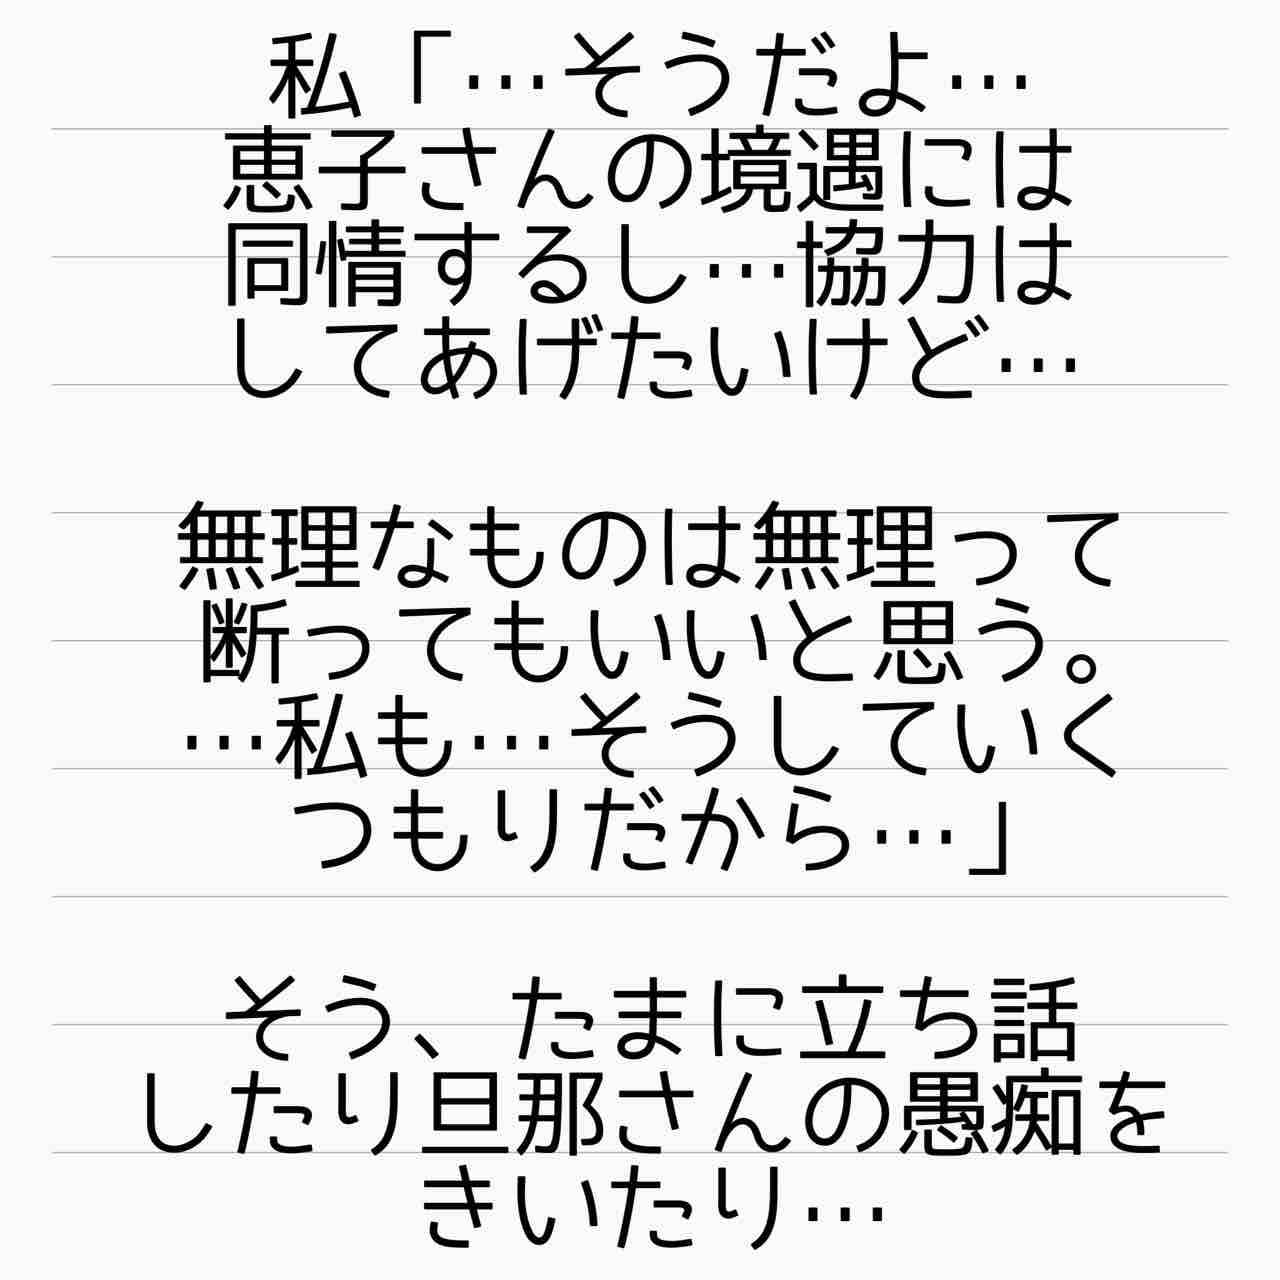 私「…そうだよ…
恵子さんの境遇には
同情するし…協力は
してあげたいけど…
無理なものは無理って
断ってもいいと思う。
…私も…そうしていく
つもりだから…」
そう、たまに立ち話
したり旦那さんの愚痴を
きいたり…